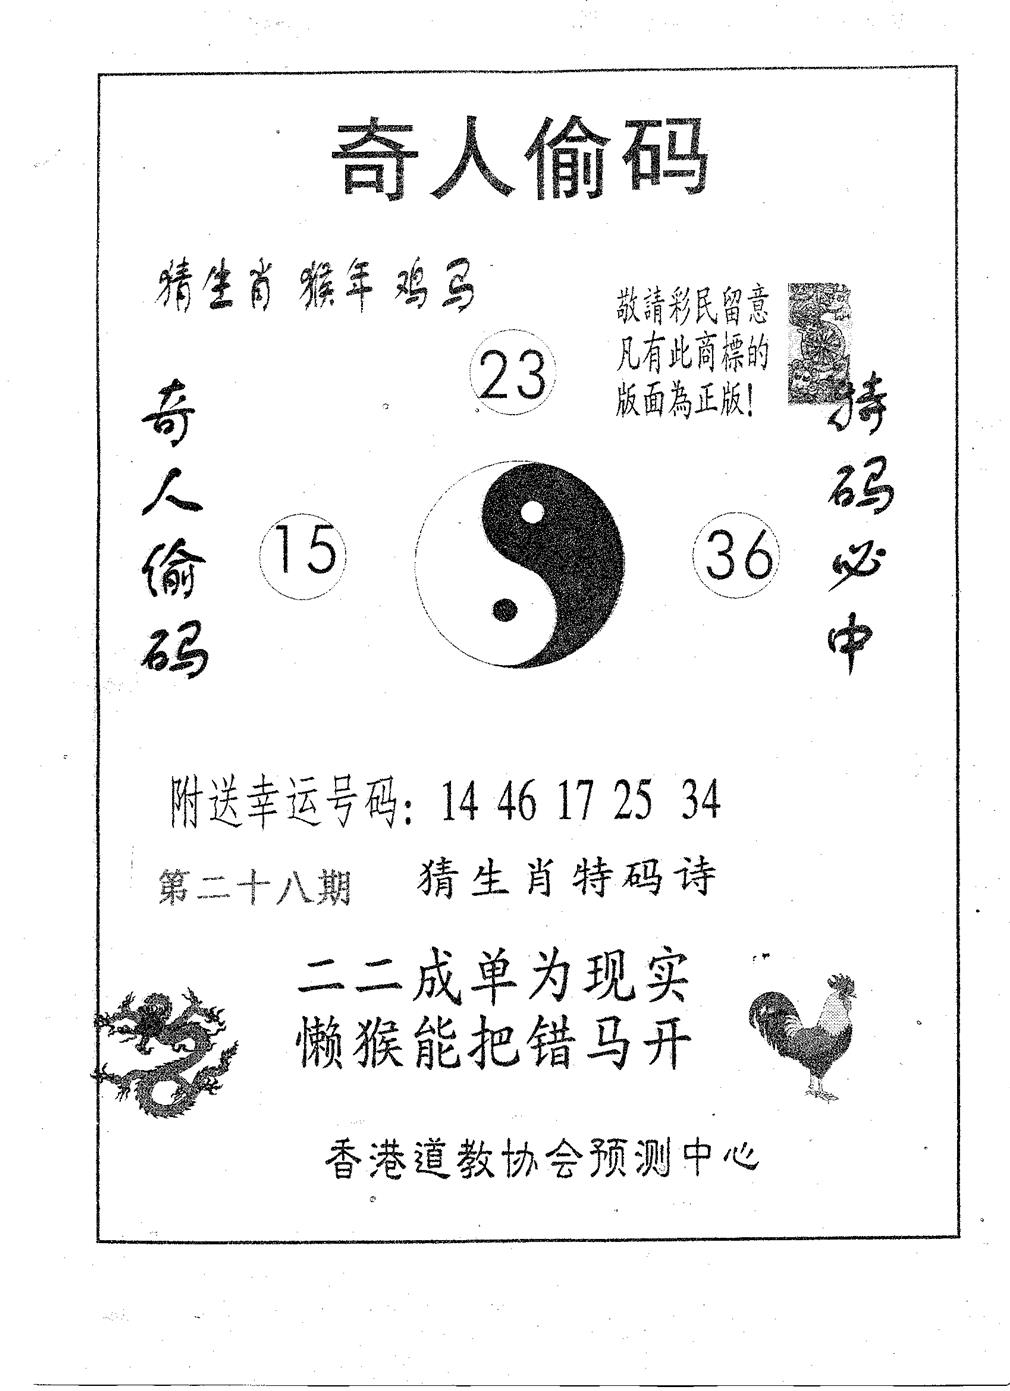 奇人偷码
猜生肖 猴年 鸡马
敬請彩民留意
凡有此商標的
版面為正版!
23
奇人偷码
15
36
特码必中
附送幸运号码: 14 46 17 25 34
第二十八期 猜生肖特码诗
二二成单为现实
懒猴能把错马开
香港道教协会预测中心